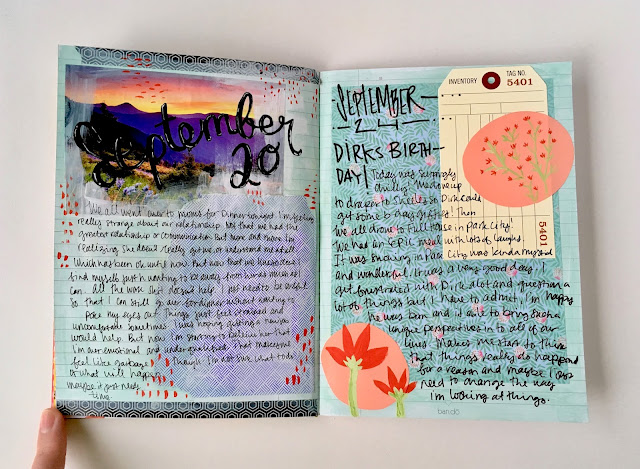 September
20
We all went over to moms for Dinner tonight. I'm feeling
really strange about our relationship. Not that we had the
greatest relationship or communication. But more and more I'm
realizing she doesn't really get me or understand me at all.
Which has been ok until now. But now that we live so close I
find myself just wanting to be away from us as much as I
can. All the work shit doesn't help. I just need to be careful
so that I can still go over for dinner without wanting to
poke my eyes out. Things just feel strained and
uncomfortable sometimes. I was hoping getting a new job
would help. But now I'm starting to believe her that
I'm over emotional and under qualified. That makes me
feel like garbage. Though I'm not sure what to do
or what will happen.
maybe it just needs
time.
SEPTEMBER
21
INVENTORY TAG NO.
5401
DIRKS BIRTH-
DAY! Today was
chilly! Made me
to to Shelles so Dirk could
get some b'day gifts! Then
we all drove to Full House in Park City!
We had an EPIC meal with lots of laughs.
It was in Park City was kinda mysted
and wonderful. It was a very good day. I
get frustrated with Dirk alot and question a
lot of things but I have to admit, I'm happy
he was born and it able to bring such a
unique perspective in to all of our
lives. Makes me start to think
that things really do happend
for a reason and maybe I just
need to change the way
I'm looking at things.
5401
ban.dō